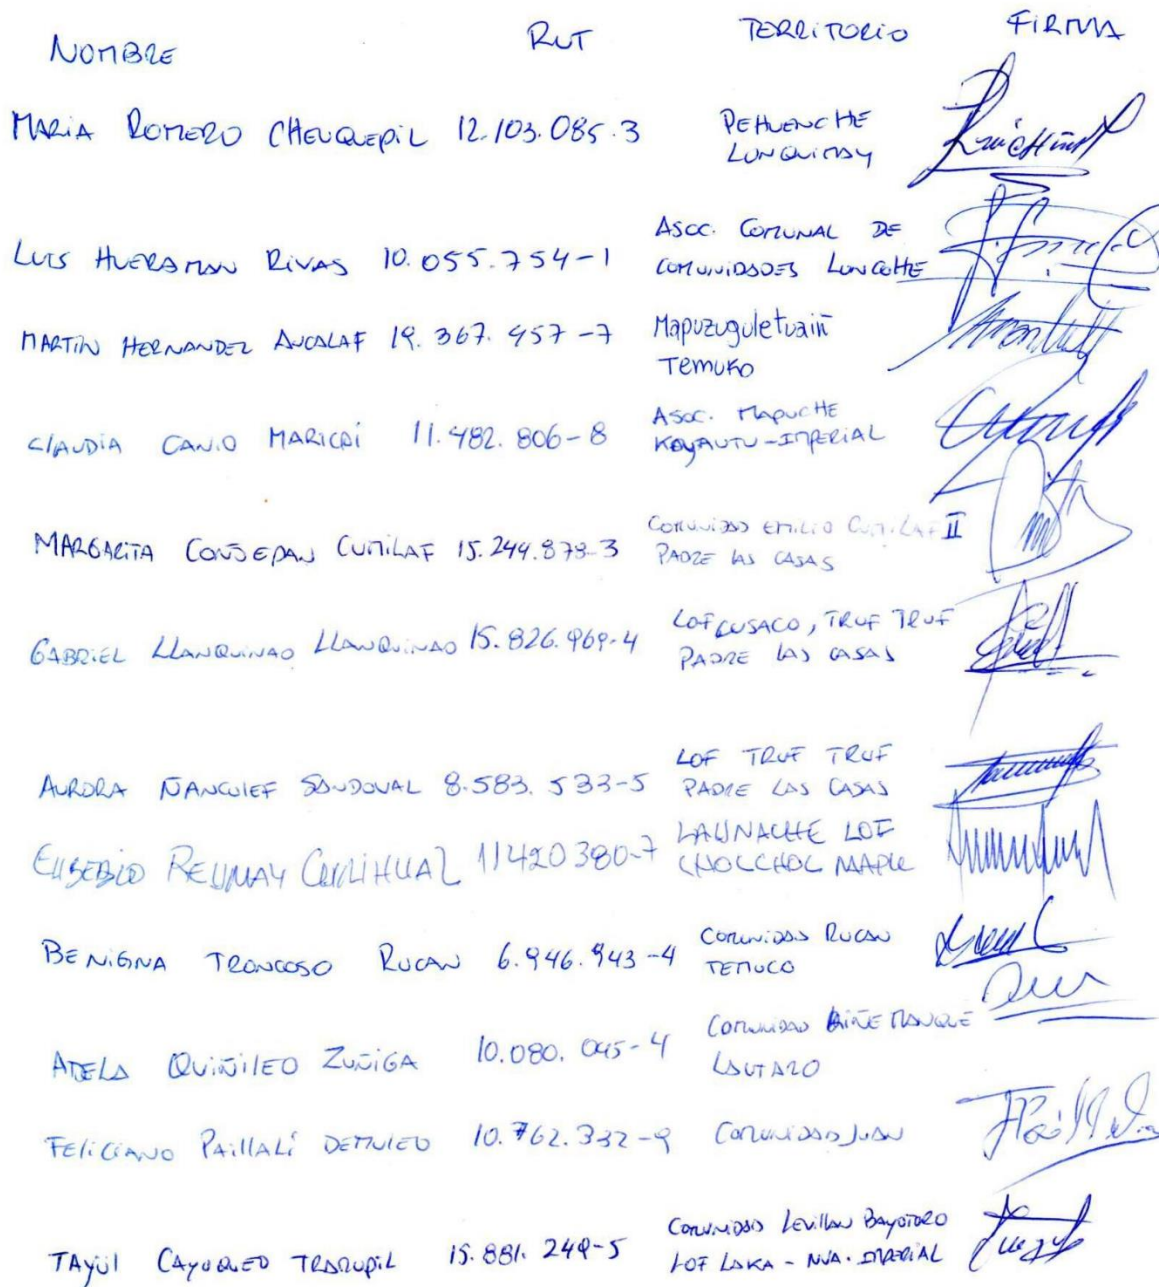 NOMBRE RUT TERRITORIO FIRMA
MARIA ROMERO CHEUQUEPIL 12.103.085.3 PEHUENCHE
LONQUIMAY
LUIS HUERAMAN RIVAS 10.055.754-1 ASOC. COMUNAL DE
COMUNIDADES LONCOCHE
MARTIN HERNANDEZ AUCALAF 19.367.957-7 Mapuzuguletuaiñ
TEMUKO
CLAUDIA CANIO MARICAI 11.482.806-8 ASOC. MAPUCHE
KOYAUTU-IMPERIAL
MARGARITA CONOEPAN CUMILAF 15.244.878-3 COMUNIDAD EMILIO CUMILAF II
PADRE LAS CASAS
GABRIEL LLANQUINAO LLANQUINAO 15.826.969-4 LOF CUSACO, TRUF TRUF
PADRE LAS CASAS
AURORA ÑANCULEF SANDOVAL 8.583.533-5 LOF TRUF TRUF
PADRE LAS CASAS
EUSEBIO REUMAY CURIHUAL 11420380-7 LAUNACHE LOF
CHOLCHOL MAPU
BENIGNA TRONCOSO RUCAN 6.946.943-4 COMUNIDAD RUCAN
TEMUCO
ADELA QUIÑILEO ZUÑIGA 10.080.045-4 COMUNIDAD
LAUTARO
FELICIANO PAILLALÍ 10.762.332-9 COMUNIDAD JUAN
TAYÜL CAYUQUEO TRARUPIL 15.881.249-5 COMUNIDAD LEVILLAN
LOF LAKA - NVA. IMPERIAL